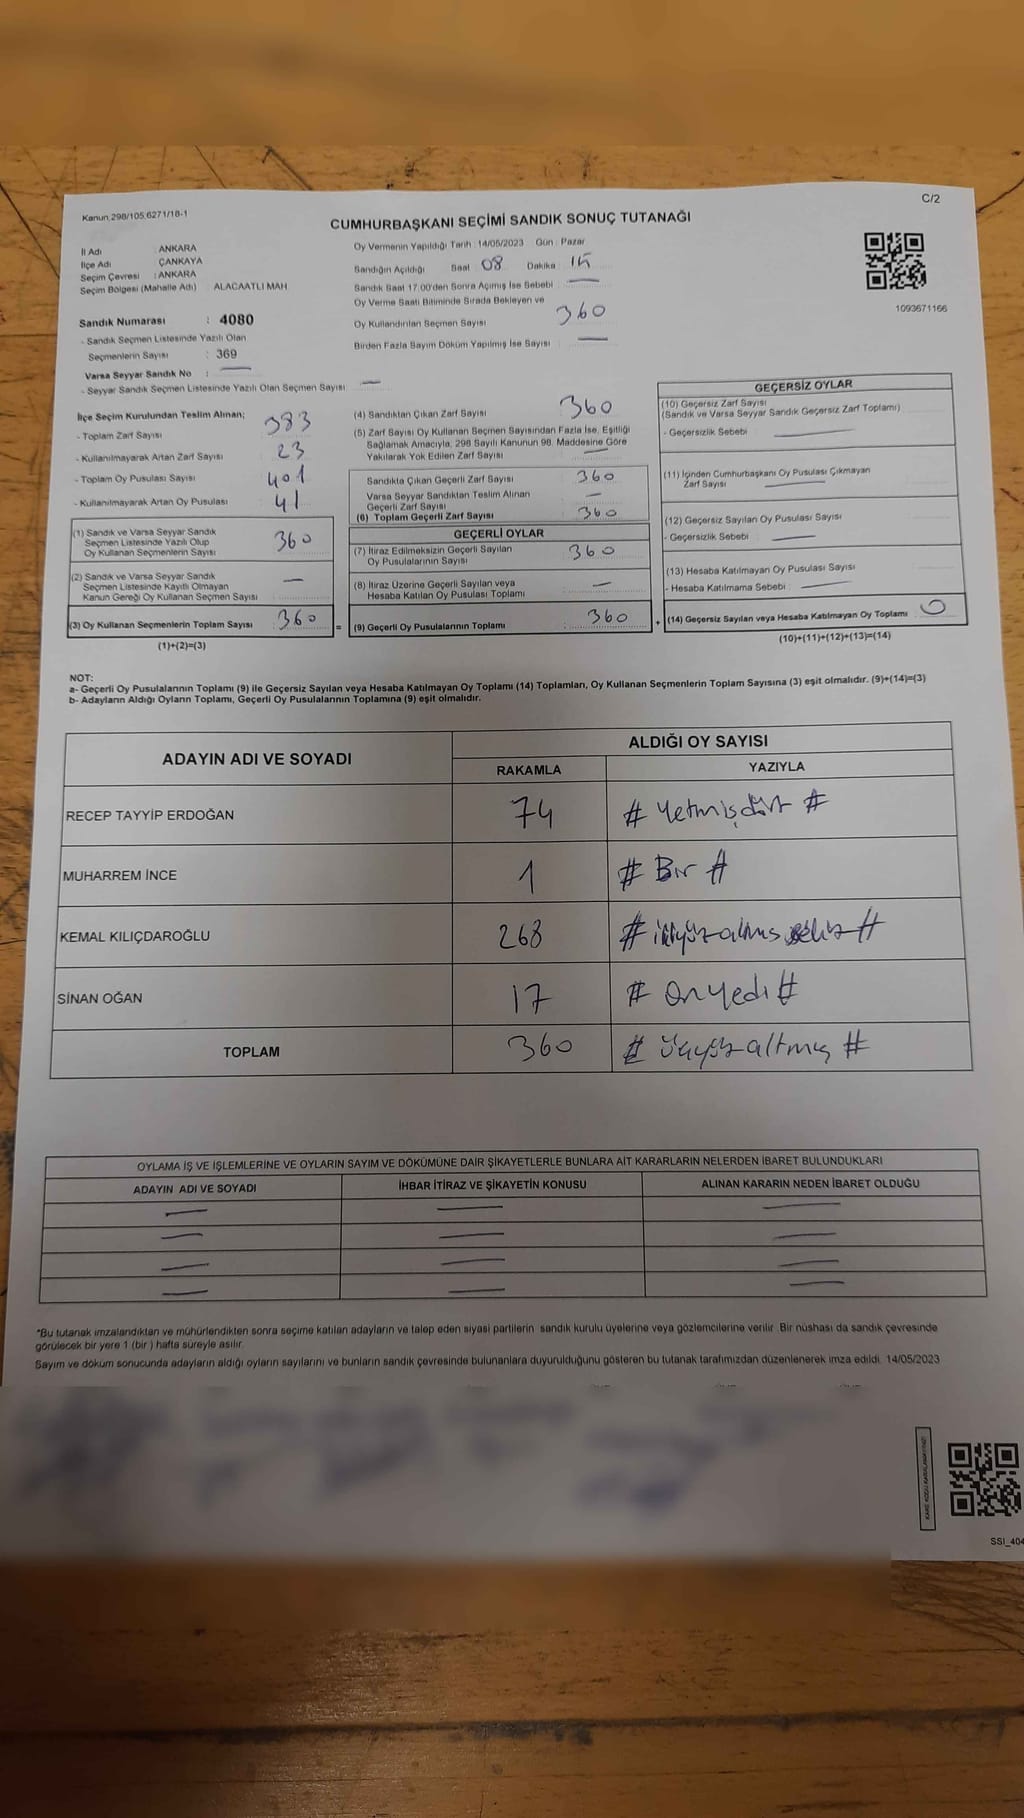 Kanun 298/105,6271/18-1
C/2
CUMHURBAŞKANI SEÇİMİ SANDIK SONUÇ TUTANAĞI
İl Adı : ANKARA
İlçe Adı : ÇANKAYA
Seçim Çevresi : ANKARA
Seçim Bölgesi (Mahalle Adı) ALACAATLI MAH
Sandık Numarası : 4080
- Sandık Seçmen Listesinde Yazılı Olan
Seçmenlerin Sayısı : 369
Varsa Seyyar Sandık No :
- Seyyar Sandık Seçmen Listesinde Yazılı Olan Seçmen Sayısı
Oy Vermenin Yapıldığı Tarih : 14/05/2023 Gün : Pazar
Sandığın Açıldığı Saat 08 Dakika 15
Sandık Saat 17.00'den Sonra Açımış İse Sebebi
Oy Verme Saati Bitiminde Sırada Bekleyen ve
Oy Kullandırılan Seçmen Sayısı 360
Birden Fazla Sayım Döküm Yapılmış İse Sayısı
1093671166
İlçe Seçim Kurulundan Teslim Alınan;
- Toplam Zarf Sayısı 383
- Kullanılmayarak Artan Zarf Sayısı 23
- Toplam Oy Pusulası Sayısı 401
- Kullanılmayarak Artan Oy Pusulası 41
(1) Sandık ve Varsa Seyyar Sandık
Seçmen Listesinde Yazılı Olup
Oy Kullanan Seçmenlerin Sayısı 360
(2) Sandık ve Varsa Seyyar Sandık
Seçmen Listesinde Kayıtlı Olmayan
Kanun Gereği Oy Kullanan Seçmen Sayısı
(3) Oy Kullanan Seçmenlerin Toplam Sayısı 360 =
(1)+(2)=(3)
(4) Sandıktan Çıkan Zarf Sayısı 360
(5) Zarf Sayısı Oy Kullanan Seçmen Sayısından Fazla İse, Eşitliği
Sağlamak Amacıyla, 298 Sayılı Kanunun 98. Maddesine Göre
Yakılarak Yok Edilen Zarf Sayısı
Sandıkta Çıkan Geçerli Zarf Sayısı 360
Varsa Seyyar Sandıktan Teslim Alınan
Geçerli Zarf Sayısı
(6) Toplam Geçerli Zarf Sayısı 360
GEÇERLİ OYLAR
(7) İtiraz Edilmeksizin Geçerli Sayılan
Oy Pusulalarının Sayısı 360
(8) İtiraz Üzerine Geçerli Sayılan veya
Hesaba Katılan Oy Pusulası Toplamı
(9) Geçerli Oy Pusulalarının Toplamı 360 +
GEÇERSİZ OYLAR
(10) Geçersiz Zarf Sayısı
(Sandık ve Varsa Seyyar Sandık Geçersiz Zarf Toplamı)
- Geçersizlik Sebebi
(11) İçinden Cumhurbaşkanı Oy Pusulası Çıkmayan
Zarf Sayısı
(12) Geçersiz Sayılan Oy Pusulası Sayısı
- Geçersizlik Sebebi
(13) Hesaba Katılmayan Oy Pusulası Sayısı
- Hesaba Katılmama Sebebi
(14) Geçersiz Sayılan veya Hesaba Katılmayan Oy Toplamı 0
(10)+(11)+(12)+(13)=(14)
NOT:
a- Geçerli Oy Pusulalarının Toplamı (9) ile Geçersiz Sayılan veya Hesaba Katılmayan Oy Toplamı (14) Toplamları, Oy Kullanan Seçmenlerin Toplam Sayısına (3) eşit olmalıdır. (9)+(14)=(3)
b- Adayların Aldığı Oyların Toplamı, Geçerli Oy Pusulalarının Toplamına (9) eşit olmalıdır.
ADAYIN ADI VE SOYADI
ALDIĞI OY SAYISI
RAKAMLA YAZIYLA
RECEP TAYYİP ERDOĞAN 74 # Yetmişdört #
MUHARREM İNCE 1 # Bir #
KEMAL KILIÇDAROĞLU 268 # ikiyüzaltmış sekiz #
SİNAN OĞAN 17 # Onyedi #
TOPLAM 360 # üçyüzaltmış #
OYLAMA İŞ VE İŞLEMLERİNE VE OYLARIN SAYIM VE DÖKÜMÜNE DAİR ŞİKAYETLERLE BUNLARA AİT KARARLARIN NELERDEN İBARET BULUNDUKLARI
ADAYIN ADI VE SOYADI İHBAR İTİRAZ VE ŞİKAYETİN KONUSU ALINAN KARARIN NEDEN İBARET OLDUĞU
*Bu tutanak imzalandıktan ve mühürlendikten sonra seçime katılan adayların ve talep eden siyasi partilerin sandık kurulu üyelerine veya gözlemcilerine verilir. Bir nüshası da sandık çevresinde
görülecek bir yere 1 (bir) hafta süreyle asılır.
Sayım ve döküm sonucunda adayların aldığı oyların sayılarını ve bunların sandık çevresinde bulunanlara duyurulduğunu gösteren bu tutanak tarafımızdan düzenlenerek imza edildi. 14/05/2023
SSI_404